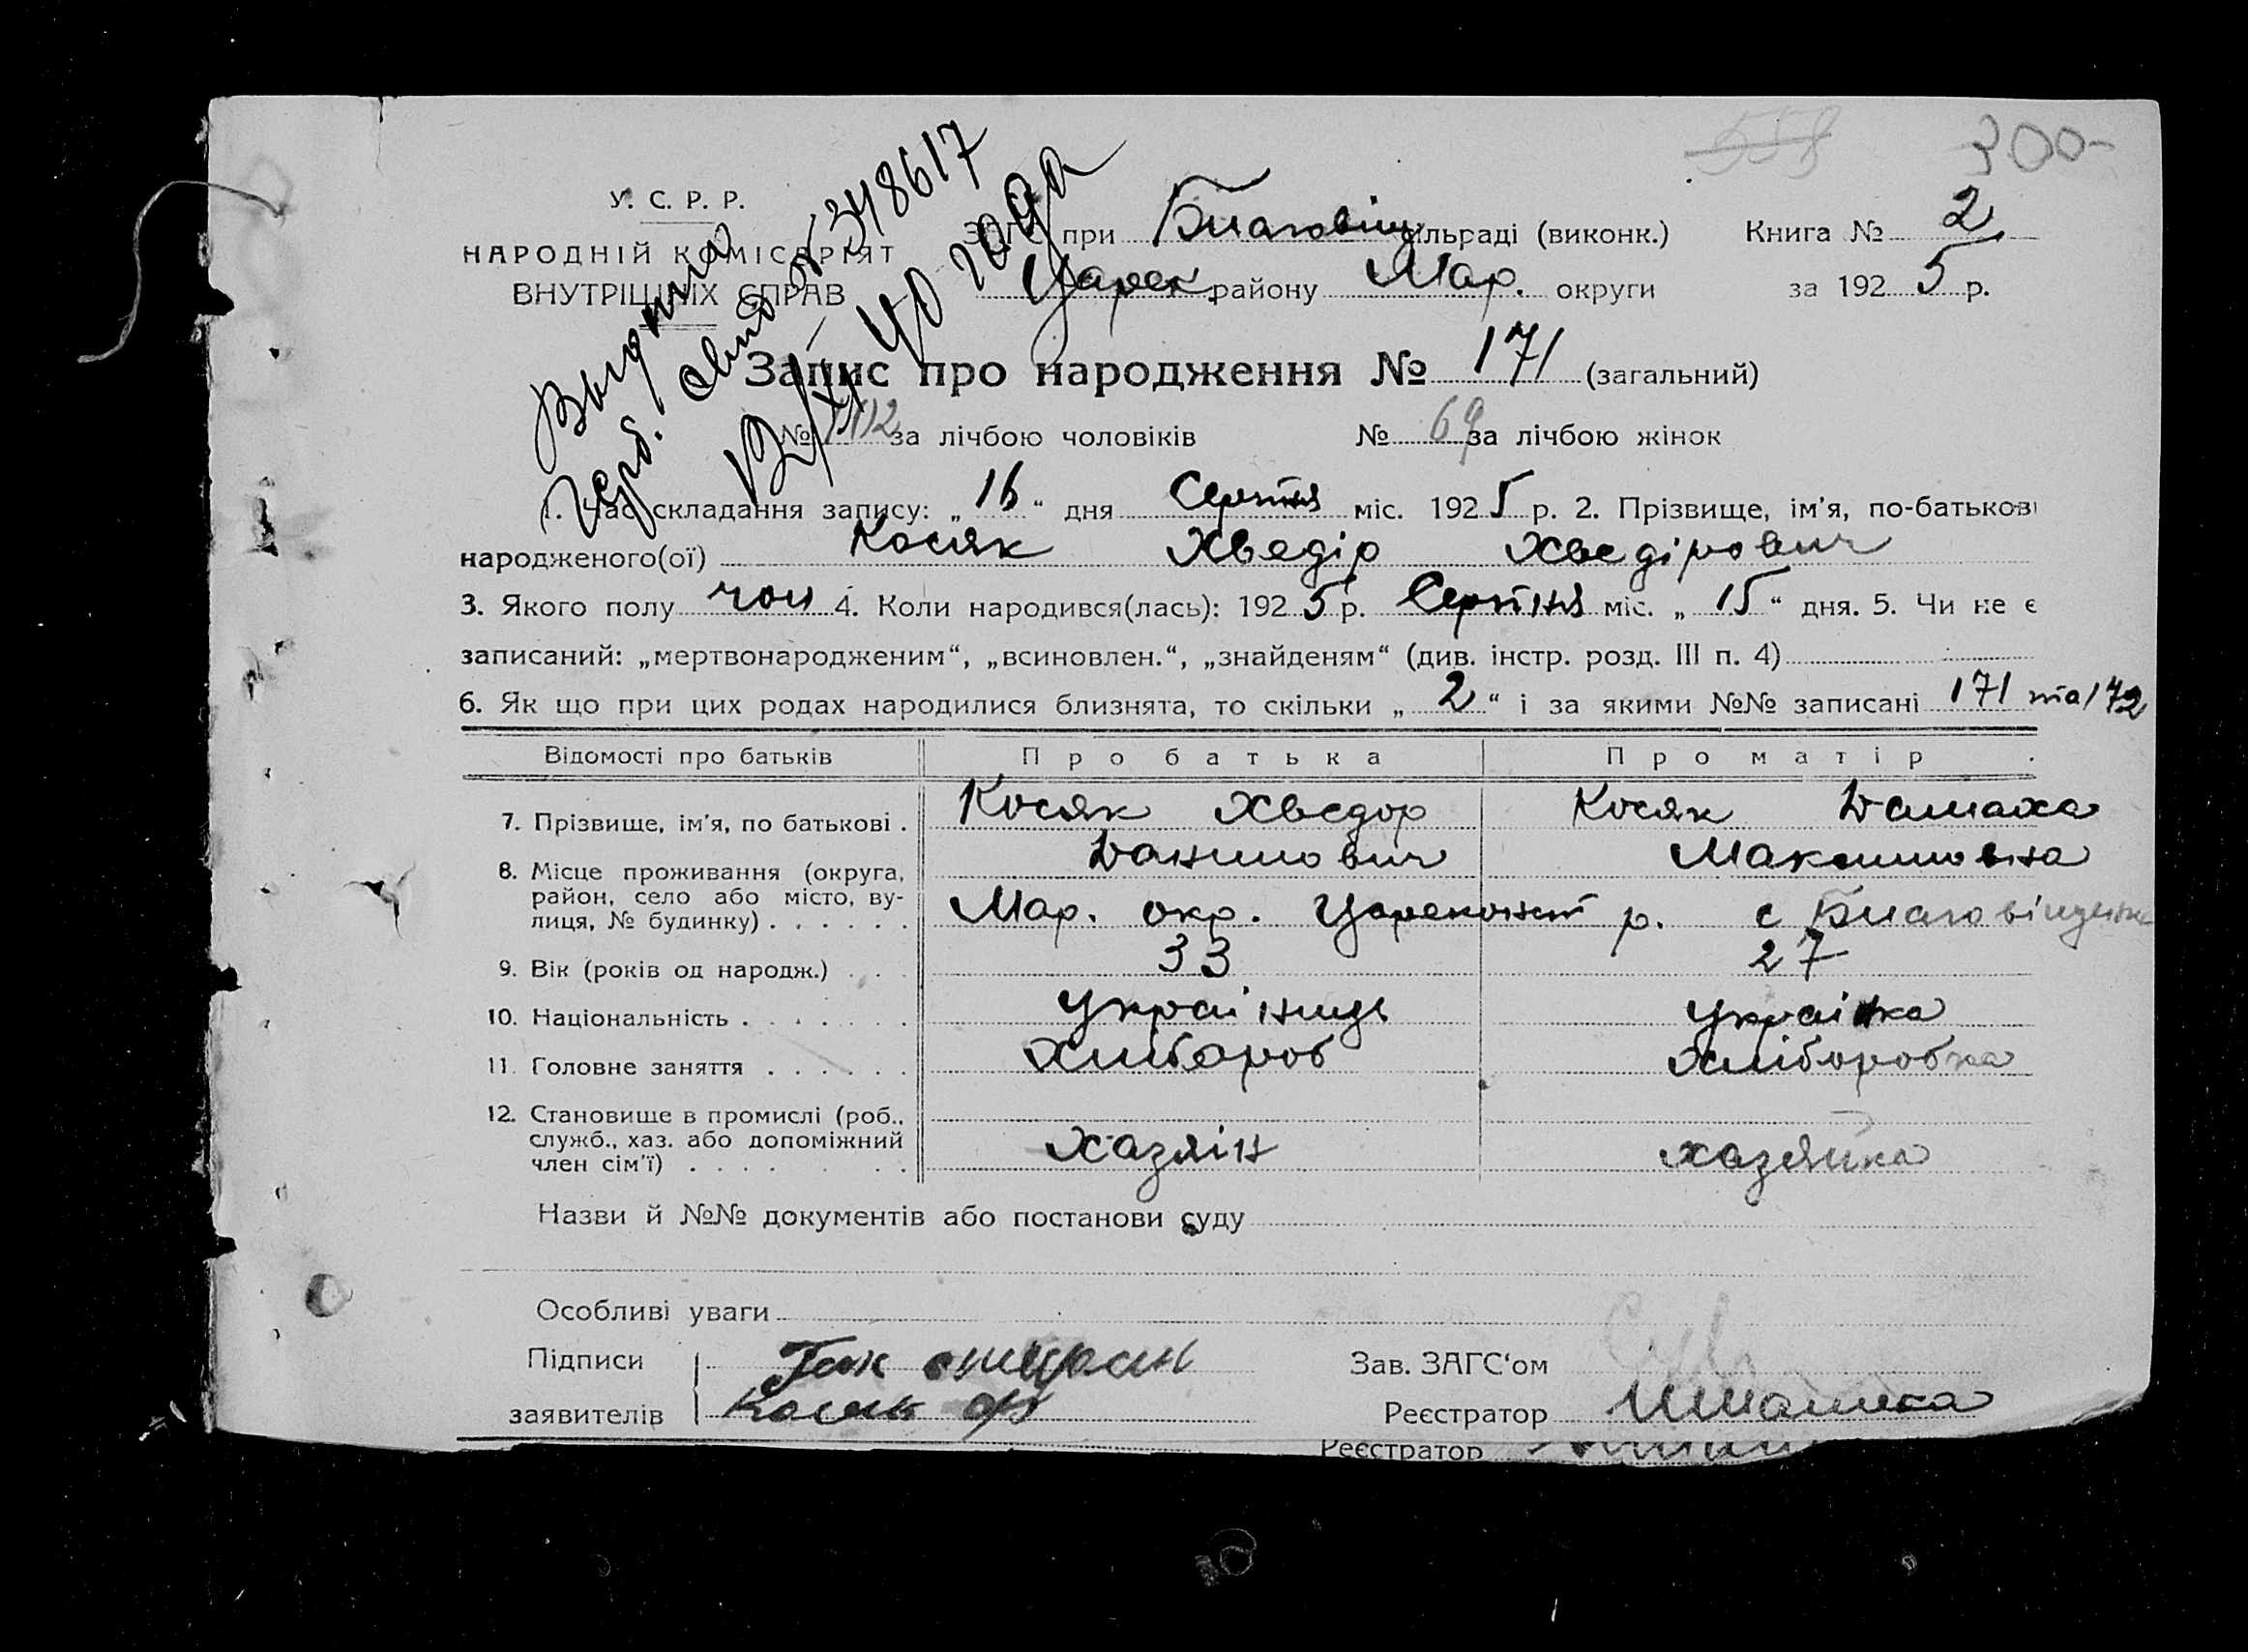 558
300-
У. С. Р. Р.
НАРОДНІЙ КОМІСАРІЯТ
ВНУТРІШНІХ СПРАВ
Выдана
герб. свид № 348617
12/XI 40 года
ЗАГС при Благовіщ. сільраді (виконк.) Книга № 2
Царек. району Мар. округи за 1925 р.
Запис про народження № 171 (загальний)
№ 102 за лічбою чоловіків № 69 за лічбою жінок
1. Час складання запису: „16“ дня Серпня міс. 1925 р. 2. Прізвище, ім'я, по-батькові
народженого(ої) Косяк Хведір Хведірович
3. Якого полу чол 4. Коли народився(лась): 1925 р. Серпня міс. „15“ дня. 5. Чи не є
записаний: „мертвонародженим“, „всиновлен.“, „знайденям“ (див. інстр. розд. III п. 4)
6. Як що при цих родах народилися близнята, то скільки „2“ і за якими №№ записані 171 та 172
Відомості про батьків Про батька Про матір
7. Прізвище, ім'я, по батькові . Косяк Хведор Данилович Косяк Домаха Максимовна
8. Місце проживання (округа, район, село або місто, вулиця, № будинку) . . . . . . Мар. окр. Цареконст р. с Благовіщення
9. Вік (років од народж.) . . . 33 27
10. Національність . . . . . . . Українець Українка
11. Головне заняття . . . . . . Хлібороб Хліборобка
12. Становище в промислі (роб., служб., хаз. або допоміжний член сім'ї) . . . . . . . хазяін хазяйка
Назви й №№ документів або постанови суду
Особливі уваги
Підписи заявителів
Косяк Ф
Зав. ЗАГС'ом
Реєстратор
Реєстратор